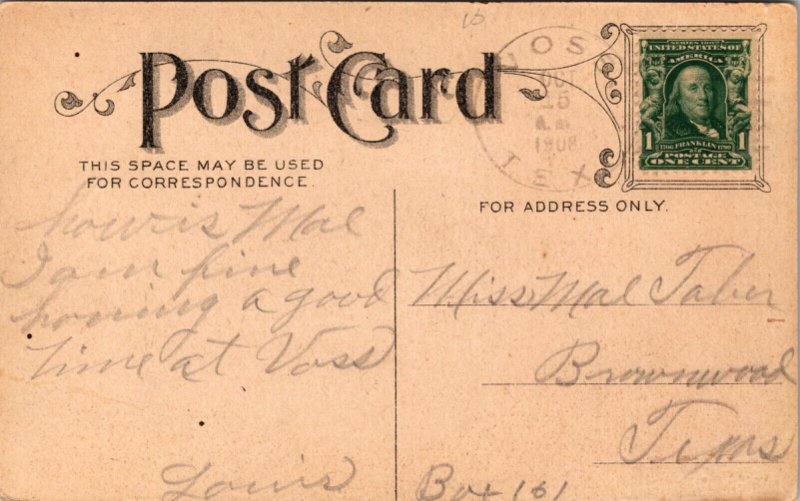 10
Post Card
VOSS
OCT
15
A.M.
1908
TEX
SERIES 1902
UNITED STATES OF
AMERICA
1 1
1706 FRANKLIN 1790
POSTAGE
ONE CENT
THIS SPACE MAY BE USED
FOR CORRESPONDENCE.
FOR ADDRESS ONLY.
how is Mae
I am fine
having a good
time at Voss
Louis
Miss Mae Taber
Brownwood
Texas
Box 161